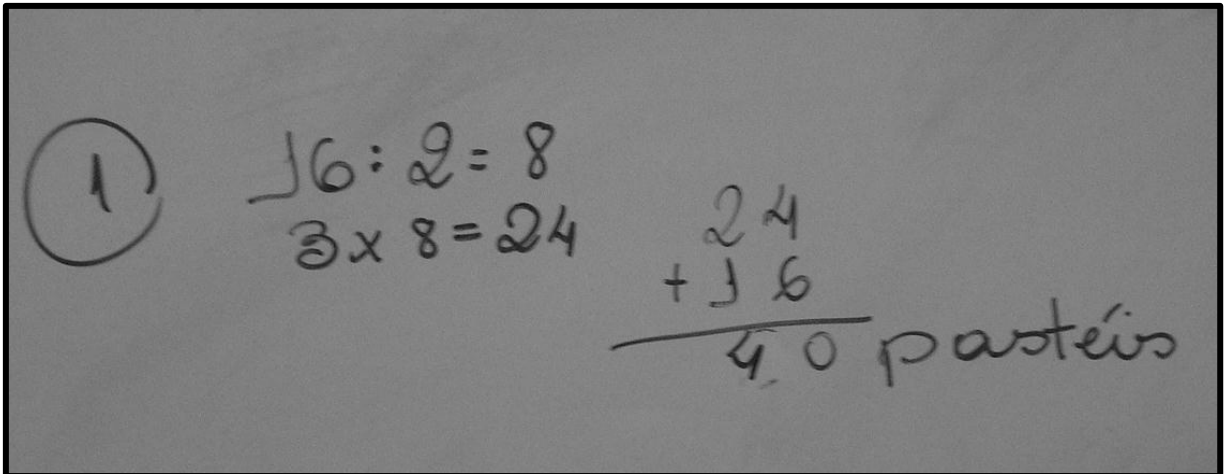 1
16 : 2 = 8
3 x 8 = 24
24
+ 16
40 pastéis